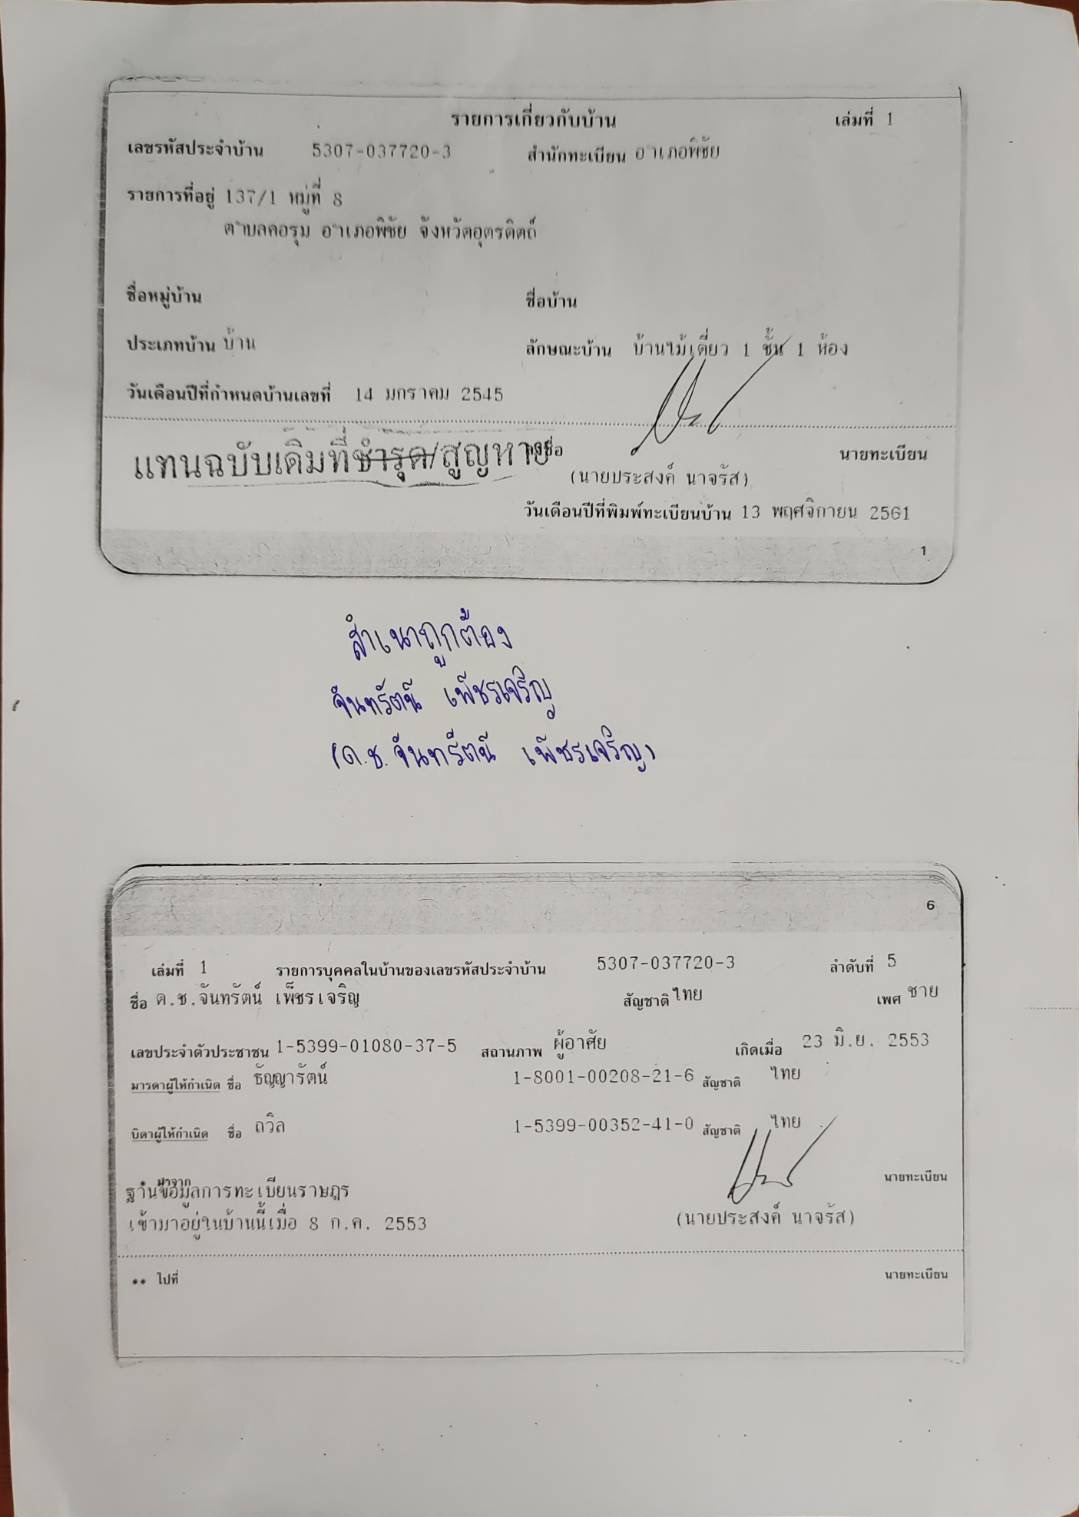 รายการเกี่ยวกับบ้าน เล่มที่ 1
เลขรหัสประจำบ้าน 5307-037720-3 สำนักทะเบียน อำเภอพิชัย
รายการที่อยู่ 137/1 หมู่ที่ 8
ตำบลคอรุม อำเภอพิชัย จังหวัดอุตรดิตถ์
ชื่อหมู่บ้าน ชื่อบ้าน
ประเภทบ้าน บ้าน ลักษณะบ้าน บ้านไม้เดี่ยว 1 ชั้น 1 ห้อง
วันเดือนปีที่กำหนดบ้านเลขที่ 14 มกราคม 2545
แทนฉบับเดิมที่ชำรุด/สูญหาย ลงชื่อ นายทะเบียน
(นายประสงค์ นาจรัส)
วันเดือนปีที่พิมพ์ทะเบียนบ้าน 13 พฤศจิกายน 2561
1
สำเนาถูกต้อง
จันทรัตน์ เพ็ชรเจริญ
(ด.ช.จันทรัตน์ เพ็ชรเจริญ)
6
เล่มที่ 1 รายการบุคคลในบ้านของเลขรหัสประจำบ้าน 5307-037720-3 ลำดับที่ 5
ชื่อ ด.ช.จันทรัตน์ เพ็ชรเจริญ สัญชาติ ไทย เพศ ชาย
เลขประจำตัวประชาชน 1-5399-01080-37-5 สถานภาพ ผู้อาศัย เกิดเมื่อ 23 มิ.ย. 2553
มารดาผู้ให้กำเนิด ชื่อ ธัญญารัตน์ 1-8001-00208-21-6 สัญชาติ ไทย
บิดาผู้ให้กำเนิด ชื่อ ถวิล 1-5399-00352-41-0 สัญชาติ ไทย
มาจาก นายทะเบียน
ฐานข้อมูลการทะเบียนราษฎร
เข้ามาอยู่ในบ้านนี้เมื่อ 8 ก.ค. 2553 (นายประสงค์ นาจรัส)
** ไปที่ นายทะเบียน